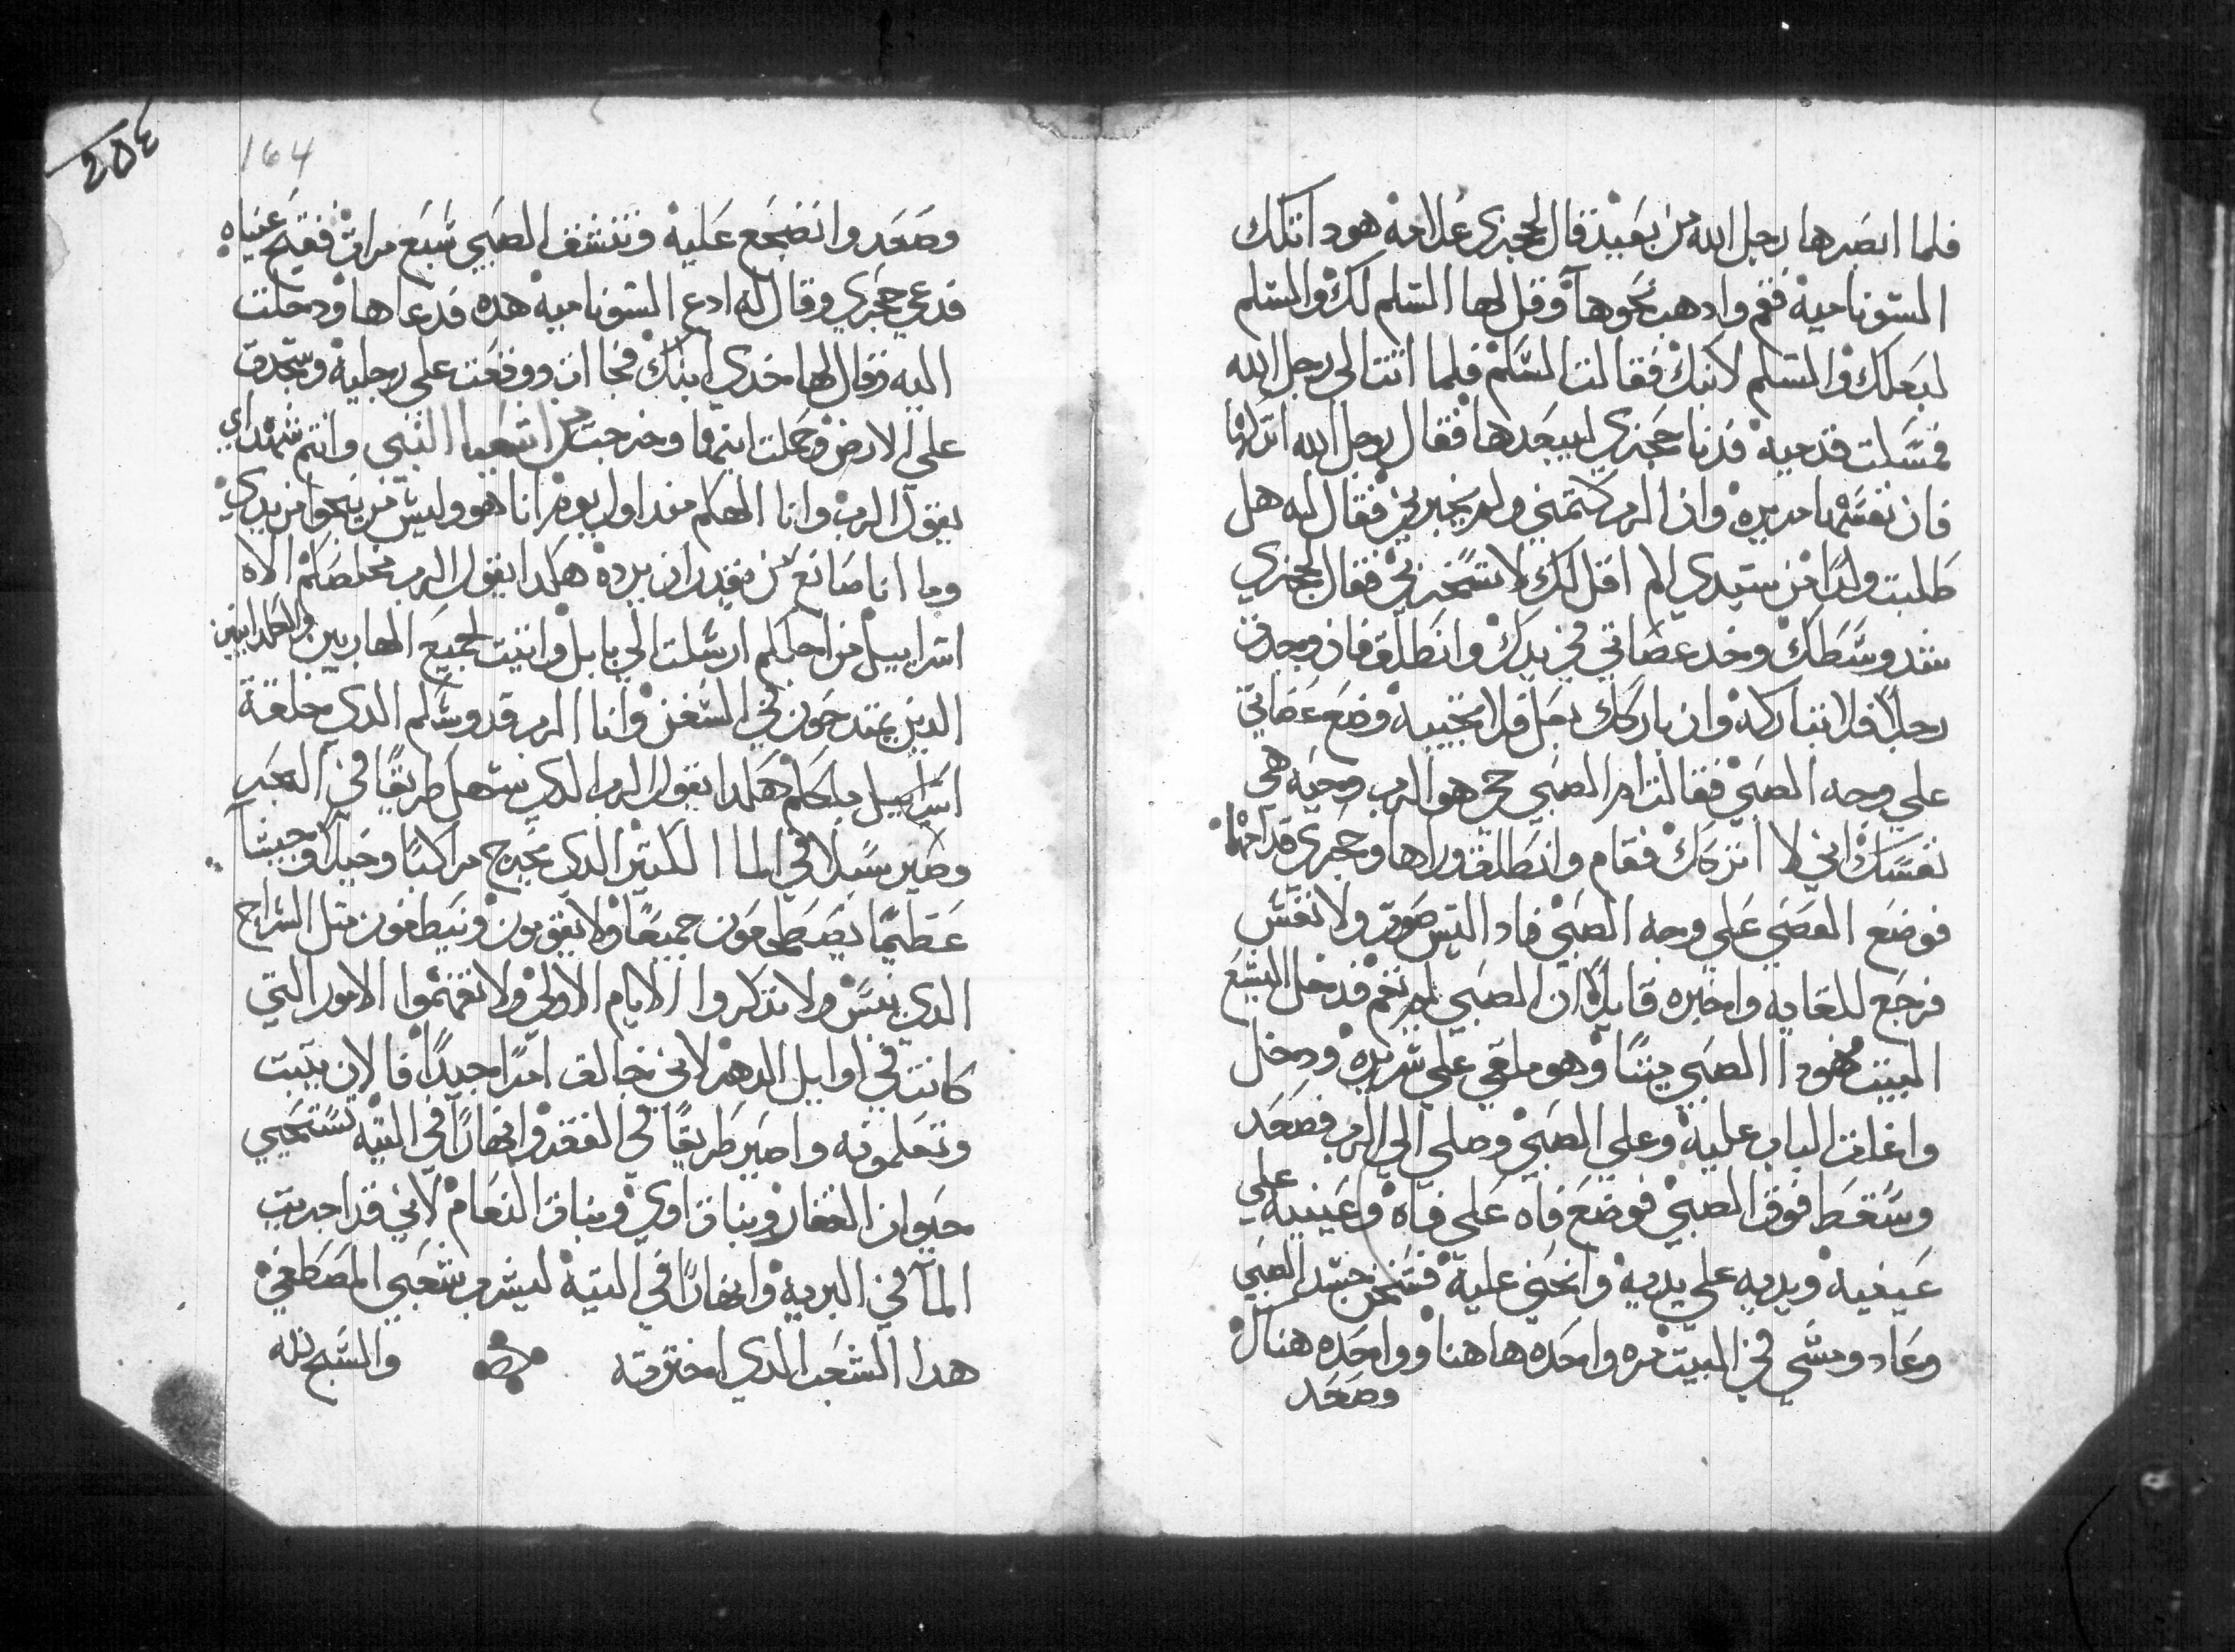 فلما ابصرها رجل الله من بعيد قال لجحزي غلامه هودا تلك
السونامية فقم وادهب نحوها وقل لها السلم لك والسلم
لبعلك والسلم لابنك فقالت السلم فلما اتت الى رجل الله
فمسكت قدميه فدنا جحزي ليبعدها فقال رجل الله اتركها
فان نفسها مريره وان الرب كتمني ولم يخبرني فقال له هل
طلبت ولدا من سيدي الم اقل لك لا تسخر بي فقال لجحزي
شد وسطك وخد عصاتي في يدك وانطلق فان وجدت
رجلا فلا تباركه وان باركك رجل فلا تجيبه وضع عصاتي
على وجه الصبي فقالت ام الصبي حي هو الرب وحيه هي
نفسك اني لا اتركك فقام وانطلق وراها وجحزي قدامهما
فوضع العصى على وجه الصبي فاد اليس صوت ولا نفس
فرجع للقايه واخبره قايلا ان الصبي لم يقم فدخل اليسع
البيت فهودا الصبي ميتا وهو ملقي على سريره ودخل
واغلق الباب عليه وعلى الصبي وصلى الى الرب فصعد
وسقط فوق الصبي فوضع فاه على فاه وعينيه على
عينيه ويديه على يديه وانحنى عليه فسخن جسد الصبي
وعاد ومشى في البيت مره واحده هاهنا وواحده هناك
وصعد
٢٥٤
164
وصعد وانضجع عليه وتنشف الصبي سبع مرات ففتح عنياه
فدعى جحزي وقال له ادع السونامية هده فدعاها ودخلت
اليه وقال لها خدي ابنك فجات ووقعت على رجليه وسجدت
على الارض وحملت ابنها وخرجت من اشعيا النبي وانتم شهداي
يقول الرب وانا الهكم مند اول يوم انا هو وليس من ينجوا من يدي
وما انا صانع من يقدر ان يرده هكدا يقول الرب مخلصكم الاه
اسراييل من اجلكم ارسلت الى بابل واتيت لجميع الهاربين والكلدانيين
الدين يمتدحون في السفن وانا الرب قدوسكم الدي خلقة
اسراييل ملككم هكدا يقول الرب الدي سهل طريقا في البحر
وصير سبلا في الما الكثير الدي يخرج مراكبا وخيلا وجيشا
عظيما يضطجعون جميعا ولا يقومون ويطفون مثل السراج
الدي يبس ولا تدكروا الايام الاولى ولا تفهموا الامور التي
كانت في اوايل الدهر لاني خالق امرا جديدا فالان ينبت
وتعلمونه واصير طريقا في القفر وانهارا في التيه تسبحني
حيوان القفار وبنات اوي وبنات النعام لاني قد اجريت
الما في البرية وانهارا في التية ليشرب شعبي المصطفى
هدا الشعب الدي اخترته والسبح لله